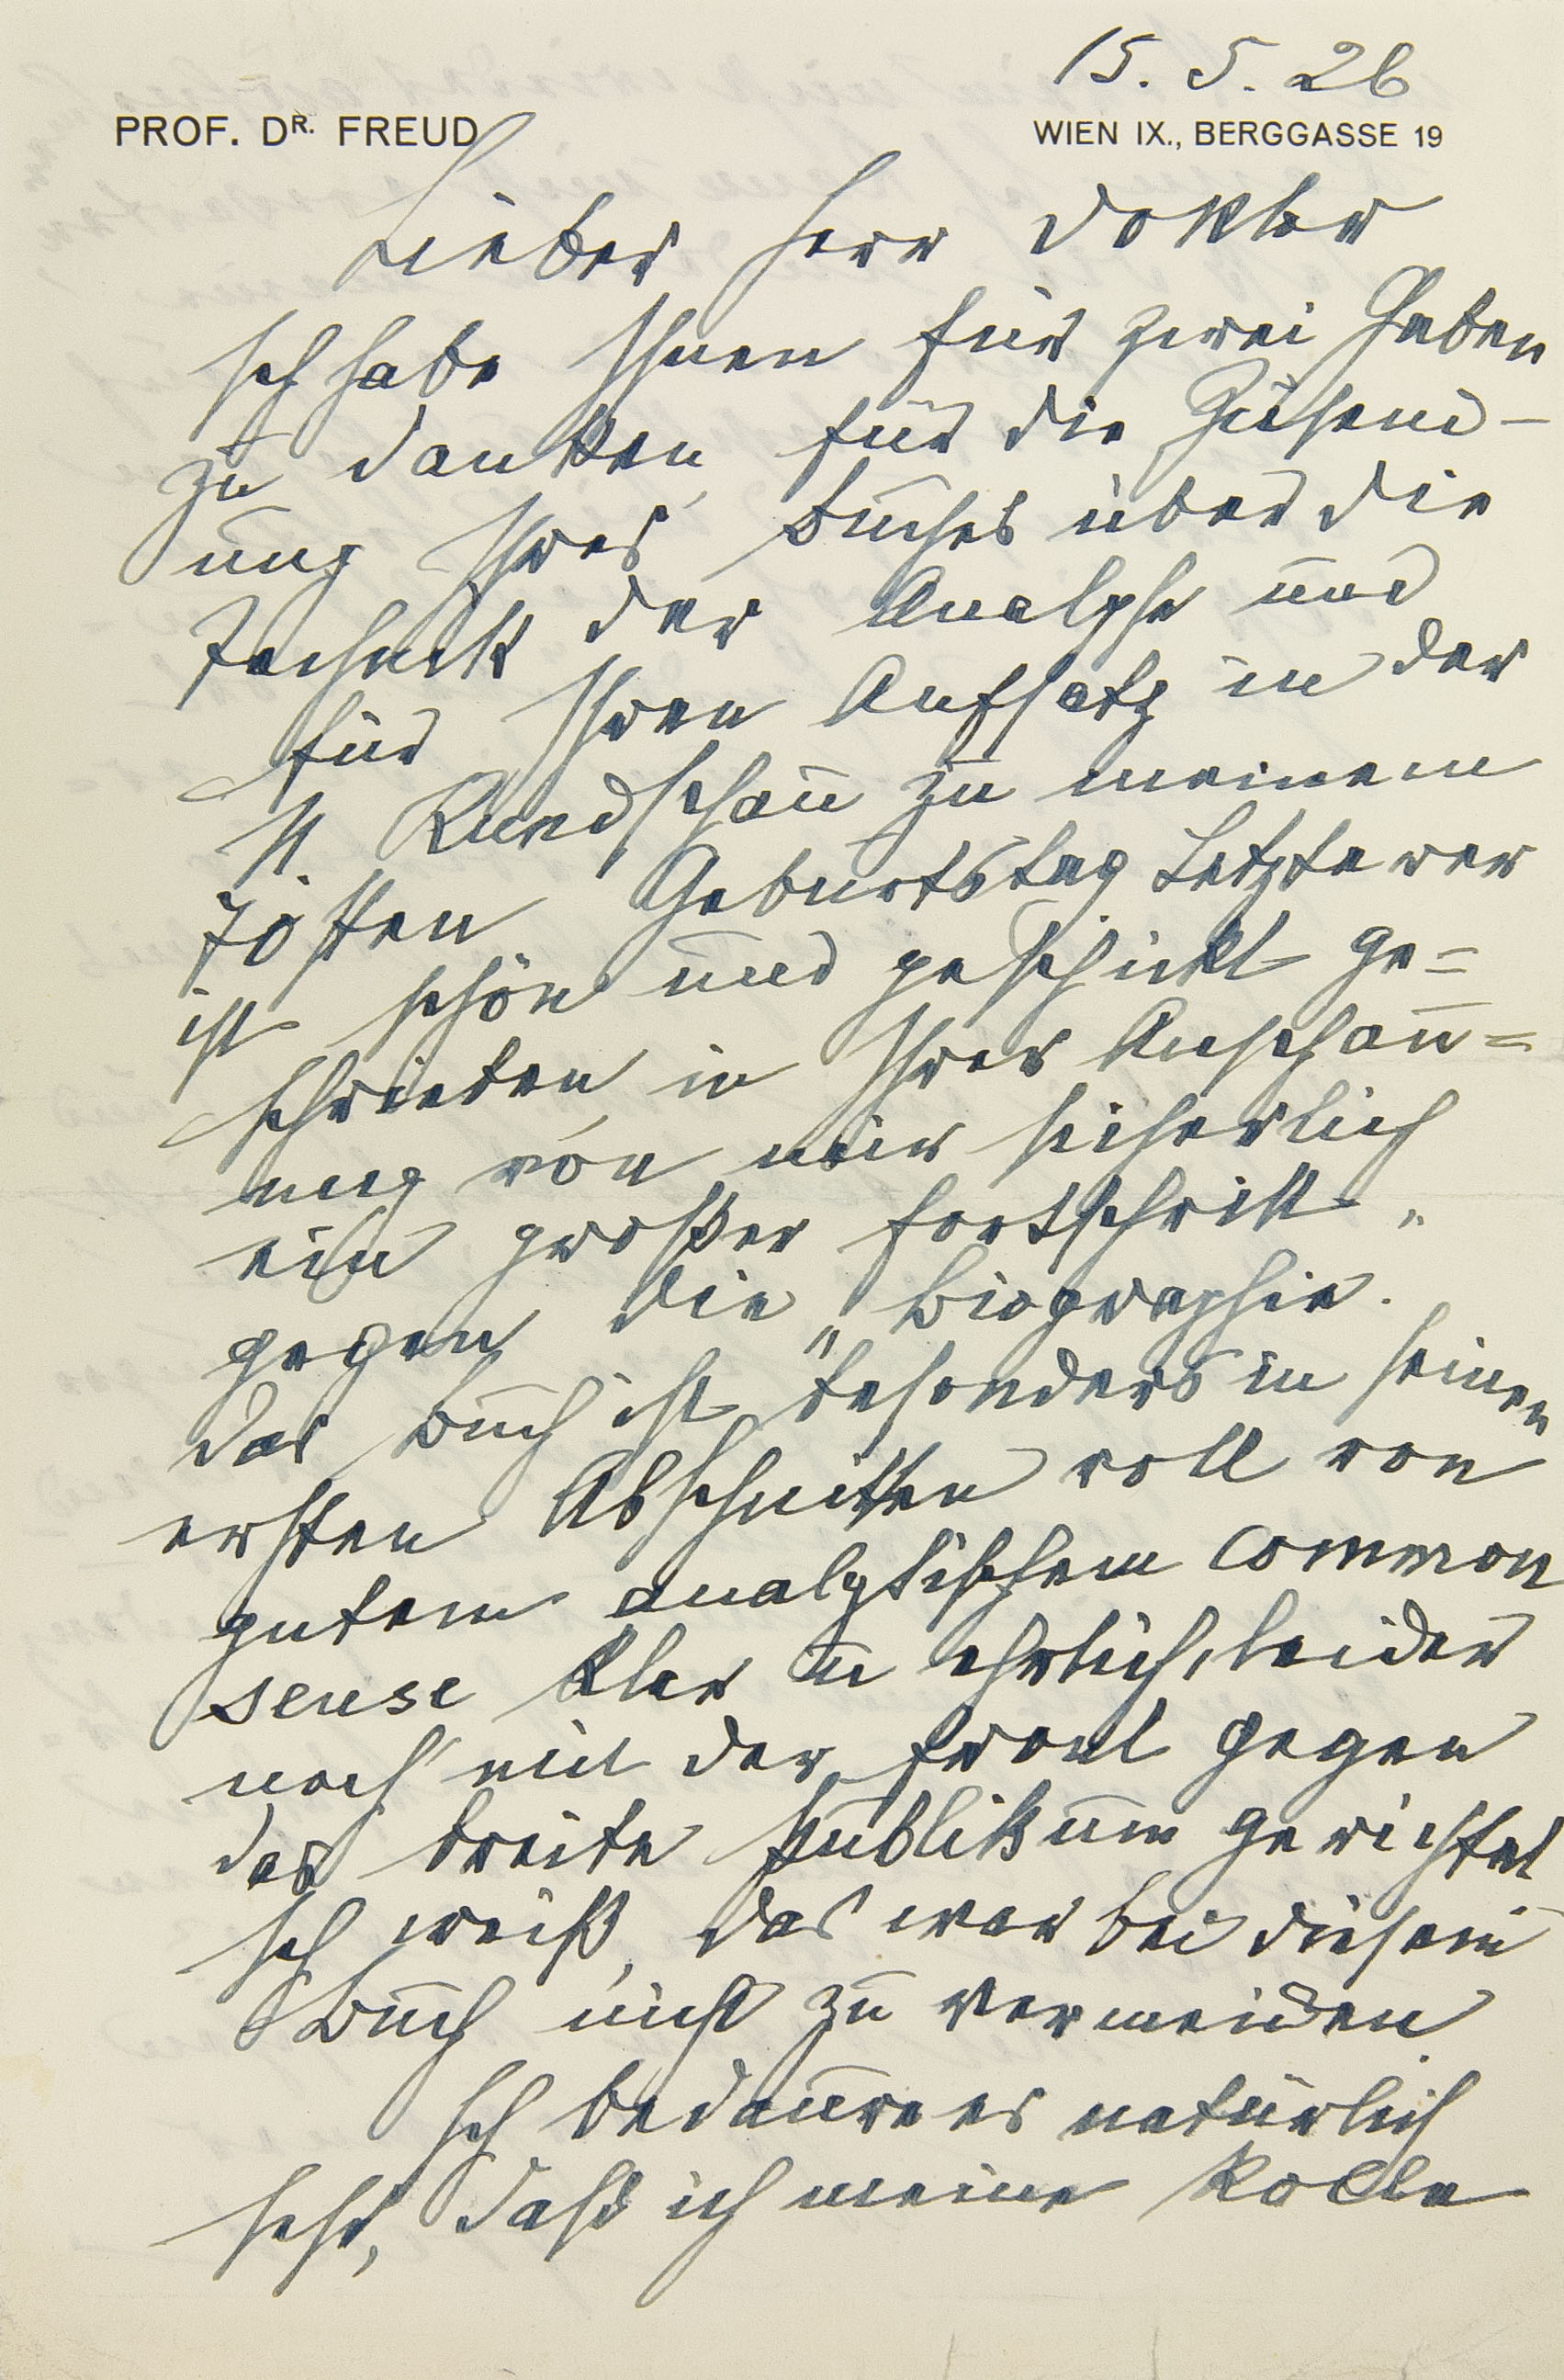 15. 5. 26
PROF. DR. FREUD WIEN IX., BERGGASSE 19
Lieber Herr Doktor
Ich habe Ihnen für zwei Gaben
zu danken, für die Zusend-
ung Ihres Buches über die
Technik der Analyse und
für Ihren Aufsatz in der
N. Rundschau zu meinem
70sten Geburtstag Letzterer
ist schön und geschickt ge=
schrieben, in Ihrer Anschau=
ung von mir sicherlich
ein großer Fortschritt
gegen die „Biographie".
Das Buch ist besonders in seinen
ersten Abschnitten voll von
gutem analytischem Common
sense klar u ehrlich, leider
noch mit der Front gegen
das breite Publikum gerichtet
Ich weiß, das war bei diesem
Buch nicht zu vermeiden
Ich bedaure es natürlich
sehr, daß ich meine Rolle